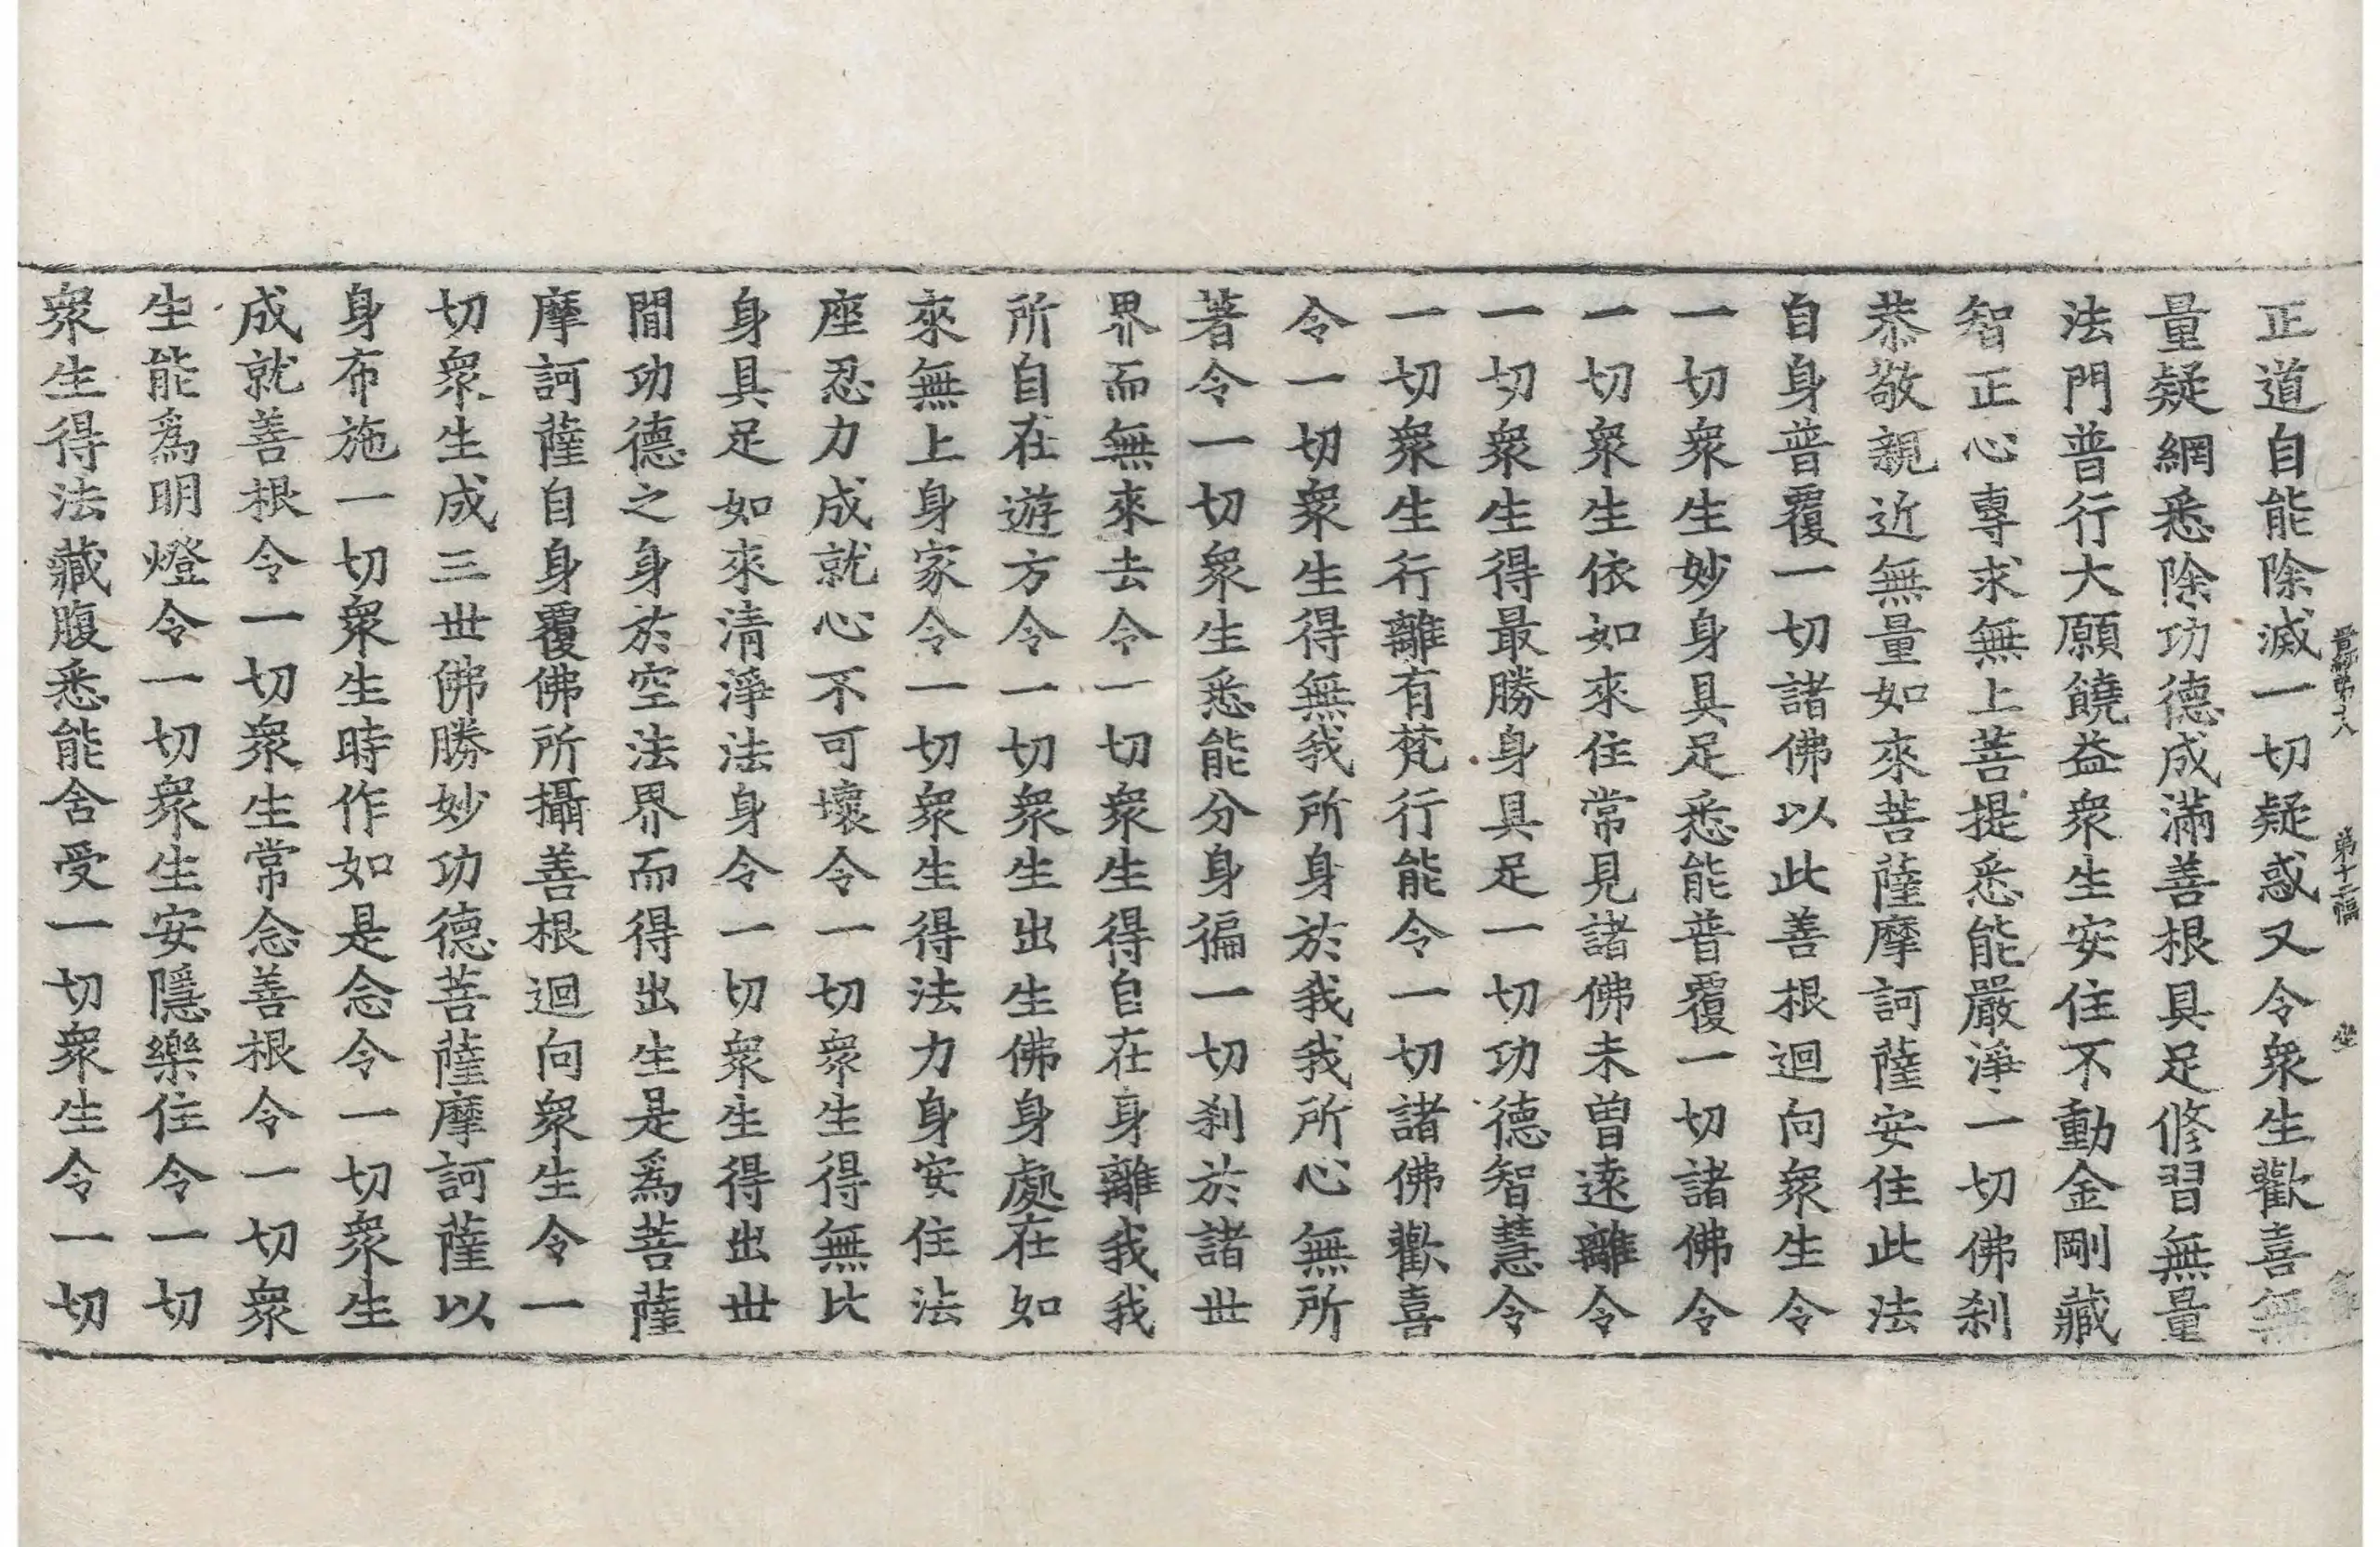 正道自能除滅一切疑惑又令衆生歡喜無
量疑網悉除功德成滿善根具足修習無量
法門普行大願饒益衆生安住不動金剛藏
智正心專求無上菩提悉能嚴淨一切佛刹
恭敬親近無量如來菩薩摩訶薩安住此法
自身普覆一切諸佛以此善根迴向衆生令
一切衆生妙身具足悉能普覆一切諸佛令
一切衆生依如來住常見諸佛未曽遠離令
一切衆生得最勝身具足一切功德智慧令
一切衆生行離有梵行能令一切諸佛歡喜
令一切衆生得無我所身於我我所心無所
著令一切衆生悉能分身徧一切刹於諸世
界而無來去令一切衆生得自在身離我我
所自在遊方令一切衆生出生佛身處在如
來無上身家令一切衆生得法力身安住法
座忍力成就心不可壞令一切衆生得無比
身具足如來清淨法身令一切衆生得出世
間功德之身於空法界而得出生是爲菩薩
摩訶薩自身覆佛所攝善根迴向衆生令一
切衆生成三世佛勝妙功德菩薩摩訶薩以
身布施一切衆生時作如是念令一切衆生
成就善根令一切衆生常念善根令一切衆
生能爲明燈令一切衆生安隱樂住令一切
衆生得法藏腹悉能含受一切衆生令一切